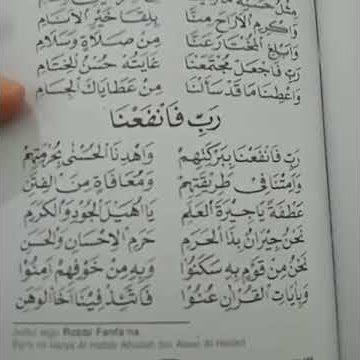 وَاكْرِمِ الْاَرْوَاحَ مِنَّا بِلِقَا خَيْرِ الْاَنَامِ
وَابْلِغِ الْمُخْتَارَ عَنَّا مِنْ صَلَاةٍ وَسَلَامِ
رَبِّ فَاجْعَلْ مُجْتَمَعْنَا غَايَتُهُ حُسْنُ الْخِتَامِ
وَاعْطِنَا مَا قَدْ سَاَلْنَا مِنْ عَطَايَاكَ الْجِسَامِ
رَبِّ فَانْفَعْنَا
رَبِّ فَانْفَعْنَا بِبَرْكَتِهِمْ وَاهْدِنَا الْحُسْنَى بِحُرْمَتِهِمْ
وَاَمِتْنَا فِي طَرِيْقَتِهِمْ وَمُعَافَاةٍ مِنَ الْفِتَنِ
عَطْفَةً يَاجِيْرَةَ الْعَلَمِ يَااُهَيْلَ الْجُوْدِ وَالْكَرَمِ
نَحْنُ جِيْرَانٌ بِذَا الْحَرَمِ حَرَمِ الْاِحْسَانِ وَالْحَسَنِ
نَحْنُ مِنْ قَوْمٍ بِهِ سَكَنُوْا وَبِهِ مِنْ خَوْفِهِمْ اَمِنُوْا
وَبِاٰيَاتِ الْقُرْاٰنِ عُنُوْا فَاتَّئِدْ فِيْنَا اَخَا الْوَهَنِ
Robbi Fanfa'na